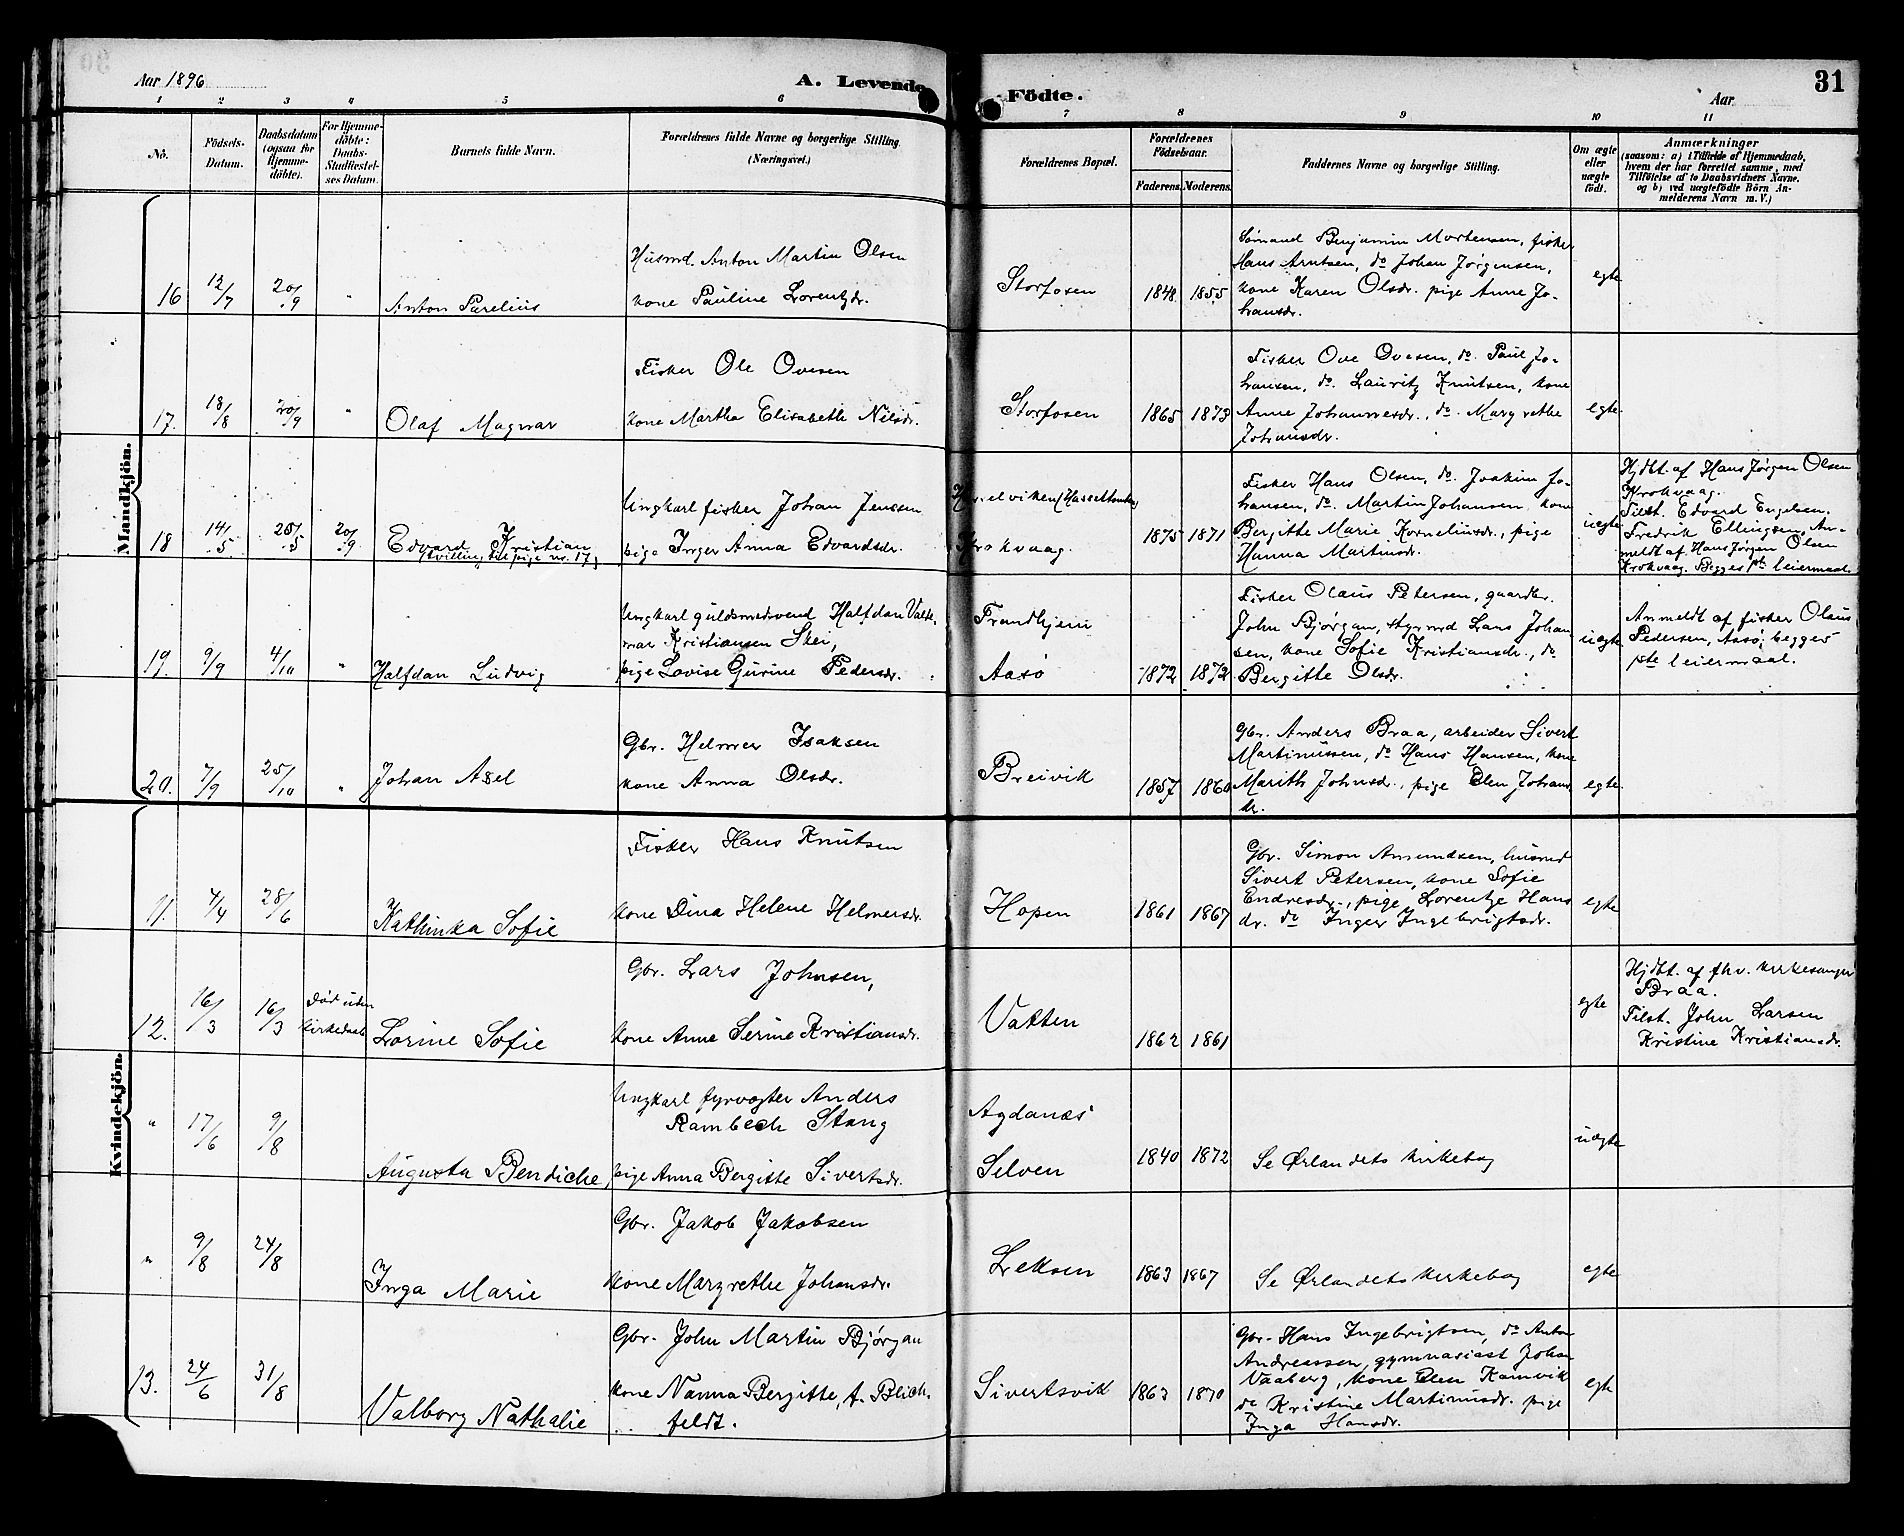 Aar 1896
A. Levende
Födte.
Aar
31
1 2 3 4 5 6 7 8 9 10 11
No.
Födsels-
Datum.
Daabsdatum
(ogsaa for
Hjemme-
döbte).
For Hjemme-
döbte:
Daabs-
Stadfæstel-
ses Datum.
Barnets fulde Navn.
Forældrenes fulde Navne og borgerlige Stilling.
(Næringsvei.)
Forældrenes Bopæl.
Forældrenes
Födselsaar.
Faderens. Moderens.
Faddernes Navne og borgerlige Stilling.
Om ægte
eller
uægte
födt.
Anmærkninger
(saasom: a) i Tilfælde af Hjemmedaab,
hvem der har forrettet samme, med
Tilföielse af to Daabsvidners Navne.
og b) ved uægtefödte Börn An-
melderens Navn m. V.)
Mandkjön.
16 12/7 20/9 " Anton Parelius
Husmd. Anton Martin Olsen
kone Pauline Lorentzdr.
Storfosen
1848 1855
Sømand Benjamin Mortensen, fisker
Hans Arntsen, do Johan Jørgensen,
kone Karen Olsdr. pige Anne Jo-
hansdr.
egte
17. 18/8 20/9 " Olaf Magnar
Fisker Ole Ovesen
kone Martha Elisabeth Nilsdr.
Storfosen
1865 1873
Fisker Ove Ovesen, do. Paul Jo-
hansen, do. Lauritz Knutsen, kone
Anne Johannesdr., do. Margrethe
Johansdr.
egte
18 14/5 25/5 20/9 Edvard Kristian
tvilling til pige nr. 17,
Ungkarl fisker Johan Jenssen
pige Inger Anna Edvardsdr.
Krokvaag.
1875 1871
Fisker Hans Olsen, do. Joakim Jo-
hansen, do. Martin Johansen, kone
Bergitte Marie Korneliusdr., pige
Hanna Martinsdr.
uegte
Hjdbt. af Hans Jørgen Olsen
Krokvaag.
Tilst. Edvard Engelsen.
Fredrik Ellingsen, An-
meldt af Hans Jørgen Olsen
Krokvaag. Begges 1ste leiermaal.
19. 9/9 4/10 " Halfdan Ludvig
Ungkarl guldsmedsvend Halfdan Valde-
mar Kristiansen Skei,
pige Lovise Gurine Pedersdr.
Trondhjem
Aasø
1872 1872
Fisker Olaus Petersen, gaardbr.
John Bjørgan, styrmd Lars Johan-
sen, kone Sofie Kristiansdr., do
Bergitte Olsdr.
uegte
Anmeldt af fisker Olaus
Pedersen, Aasø; begges
1ste leiermaal.
20. 7/9 25/10 " Johan Axel
Gbr. Helmer Isaksen
kone Anna Olsdr.
Breivik
1857 1860
Gbr. Anders Braa, arbeider Sivert
Martinussen, do Hans Hansen, kone
Marith Johnsdr., pige Elen Johans-
dr.
egte
Kvindekjön.
11. 4/4 28/6 Kathinka Sofie
Fisker Hans Knutsen
kone Dina Helene Helmersdr.
Hopen
1861 1867
Gbr. Simon Amundsen, husmd
Sivert Petersen, kone Sofie
Endresdr., pige Lorentze Hans
dr. do Inger Ingebrigtsdr.
egte
12. 16/3 16/3 Død uden
kirkedaab
Lorine Sofie
Gbr. Lars Johnsen,
kone Anne Serine Kristiansdr.
Vatten
1862 1861
egte
Hjdbt. af fhv. kirkesanger
Braa.
Tilst. John Larsen
Kristine Kristiansdr.
" 17/6 9/8 Augusta Bendicke,
Ungkarl fyrvogter Anders
Rambech Stang
pige Anna Bergitte Sivertsdr.
Agdanæs
Selven
1840 1872
Se Ørlandets kirkebog
uegte
" 9/8 24/8 Inga Marie
Gbr. Jakob Jakobsen
kone Margrethe Johansdr.
Leksen
1863 1867
Se Ørlandets kirkebog
egte
13. 24/6 31/8 Valborg Nathalie
Gbr. John Martin Bjørgan
kone Nanna Bergitte, f. Blich-
feldt.
Sivertsvik
1863 1870
Gbr. Hans Ingebrigtsen, do Anton
Andreassen, gymnasiast Johan
Vaaberg, kone Elen Ramvik
do Kristine Martinusdr. pige
Inga Hansdr.
egte